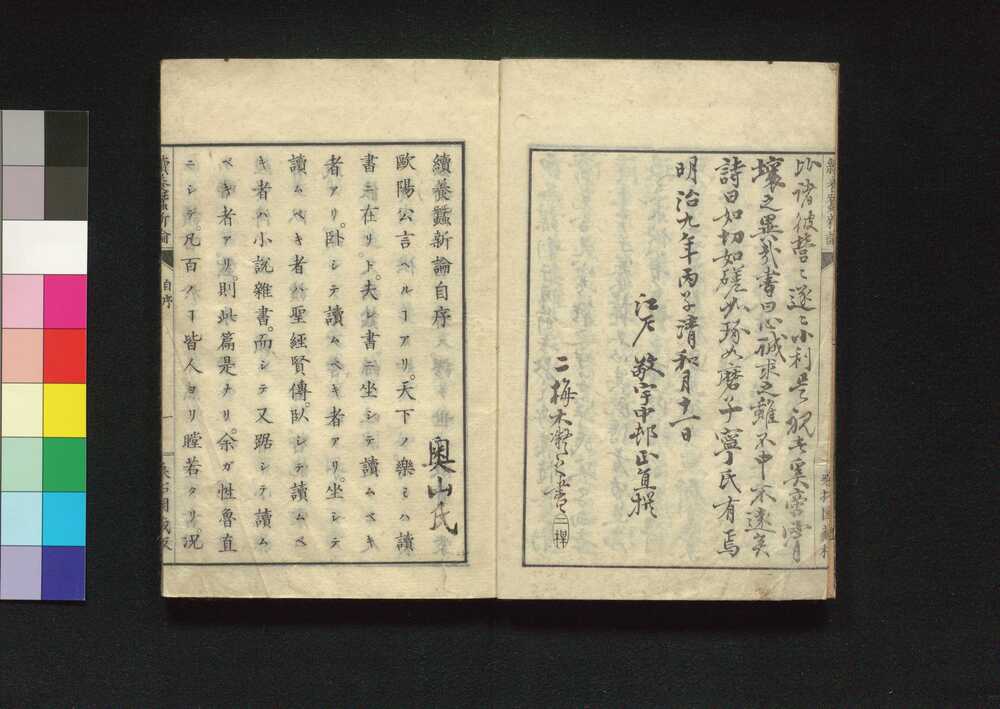 比諸彼営〻遂〻小利是視者奚啻霄
壤之異哉書曰心誠求之雖不中不遠矣
詩曰如切如磋如琢如磨于寧氏有焉
明治九年丙子清和月十一日
江戸 敬宇中邨正直撰
二梅木
續養蠶新論自序
奥山氏
歐陽公言ヘルヿアリ。天下ノ樂ミハ讀
書ニ在リ。ト。夫レ書ニ坐シテ讀ムベキ
者アリ。臥シテ讀ムベキ者アリ。坐シテ
讀ムベキ者ハ聖經賢傳。臥シテ讀ムベ
キ者ハ小説雜書。而シテ又踞シテ讀ム
ベキ者アリ。則此篇是ナリ。余ガ性魯直
ニシテ。凡百ノヿ皆人ヨリ瞠若タリ。况
續養蠶新論
自序
一